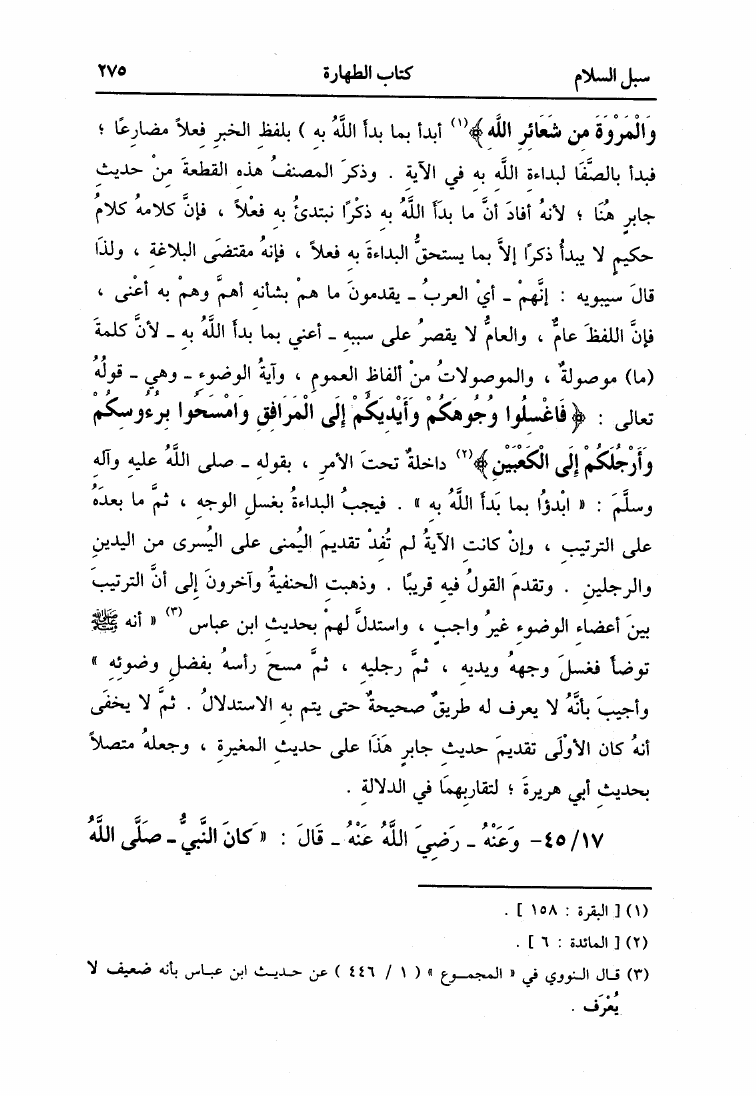 سبل السلام كتاب الطهارة ٢٧٥
وَالْمَرْوَةَ مِن شَعَائِرِ اللَّهِ﴾(١) أبدأ بما بدأ اللَّهُ به ) بلفظِ الخبرِ فعلاً مضارعًا ؛
فبدأ بالصَّفَا لبداءةِ اللَّهِ به في الآيةِ . وذكرَ المصنفُ هذهِ القطعةَ مِنْ حديثِ
جابرٍ هُنَا ؛ لأنهُ أفادَ أنَّ ما بدَأَ اللَّهُ به ذكْرًا نبتدئُ به فعْلاً ، فإنَّ كلامهُ كلامُ
حكيمٍ لا يبدأُ ذكرًا إلاَّ بما يستحقُّ البداءةَ به فعلاً ، فإنهُ مقتضَى البلاغةِ ، ولذَا
قالَ سيبويه : إنَّهمْ ـ أيْ العربُ ـ يقدمونَ ما همْ بشأنهِ أهمَّ وهمْ به أعْنى ،
فإنَّ اللفظَ عامٌّ ، والعامُّ لا يقصرُ على سببهِ ـ أعني بما بدأ اللَّهُ به ـ لأنَّ كلمةَ
(ما) موصولةٌ ، والموصولاتُ منْ ألفاظِ العمومِ ، وآيةُ الوضوءِ ـ وهي ـ قولُهُ
تعالى : ﴿فَاغْسِلُوا وُجُوهَكُمْ وَأَيْدِيَكُمْ إِلَى الْمَرَافِقِ وَامْسَحُوا بِرُءُوسِكُمْ
وَأَرْجُلَكُمْ إِلَى الْكَعْبَيْنِ﴾(٢) داخلةٌ تحتَ الأمرِ ، بقولهِ ـ صلى اللَّهُ عليهِ وآلهِ
وسلَّمَ : « ابْدؤُا بما بَدَأَ اللَّهُ به » . فيجبُ البداءةُ بغسلِ الوجهِ ، ثمَّ ما بعدَهُ
على الترتيبِ ، وإنْ كانتِ الآيةُ لم تُفِدْ تقديمَ اليُمنى على اليُسرى من اليدينِ
والرجلينِ . وتقدمَ القولُ فيهِ قريبًا . وذهبتِ الحنفيةُ وآخرونَ إلى أنَّ الترتيبَ
بينَ أعضاءِ الوضوءِ غيرُ واجبٍ ، واستدلَّ لهمْ بحديثِ ابنِ عباسٍ (٣) « أنه ﷺ
توضأ فغسلَ وجههُ ويديهِ ، ثمَّ رجليهِ ، ثمَّ مسحَ رأسهُ بفضلِ وضوئهِ »
وأجيبَ بأنَّهُ لا يعرف له طريقٌ صحيحةٌ حتى يتم به الاستدلالُ . ثمَّ لا يخفَى
أنهُ كان الأوْلَى تقديمَ حديثِ جابرٍ هَذَا على حديثِ المغيرةِ ، وجعلهُ متصلاً
بحديثِ أبي هريرةَ ؛ لتقاربهمَا في الدلالةِ .
٤٥/١٧- وَعَنْهُ ـ رَضِيَ اللَّهُ عَنْهُ ـ قَالَ : « كَانَ النَّبِيُّ ـ صَلَّى اللَّهُ
(١) [ البقرة : ١٥٨ ] .
(٢) [ المائدة : ٦ ] .
(٣) قال النووي في « المجموع » ( ١ / ٤٤٦ ) عن حديث ابن عباس بأنه ضعيف لا
يُعْرَف .